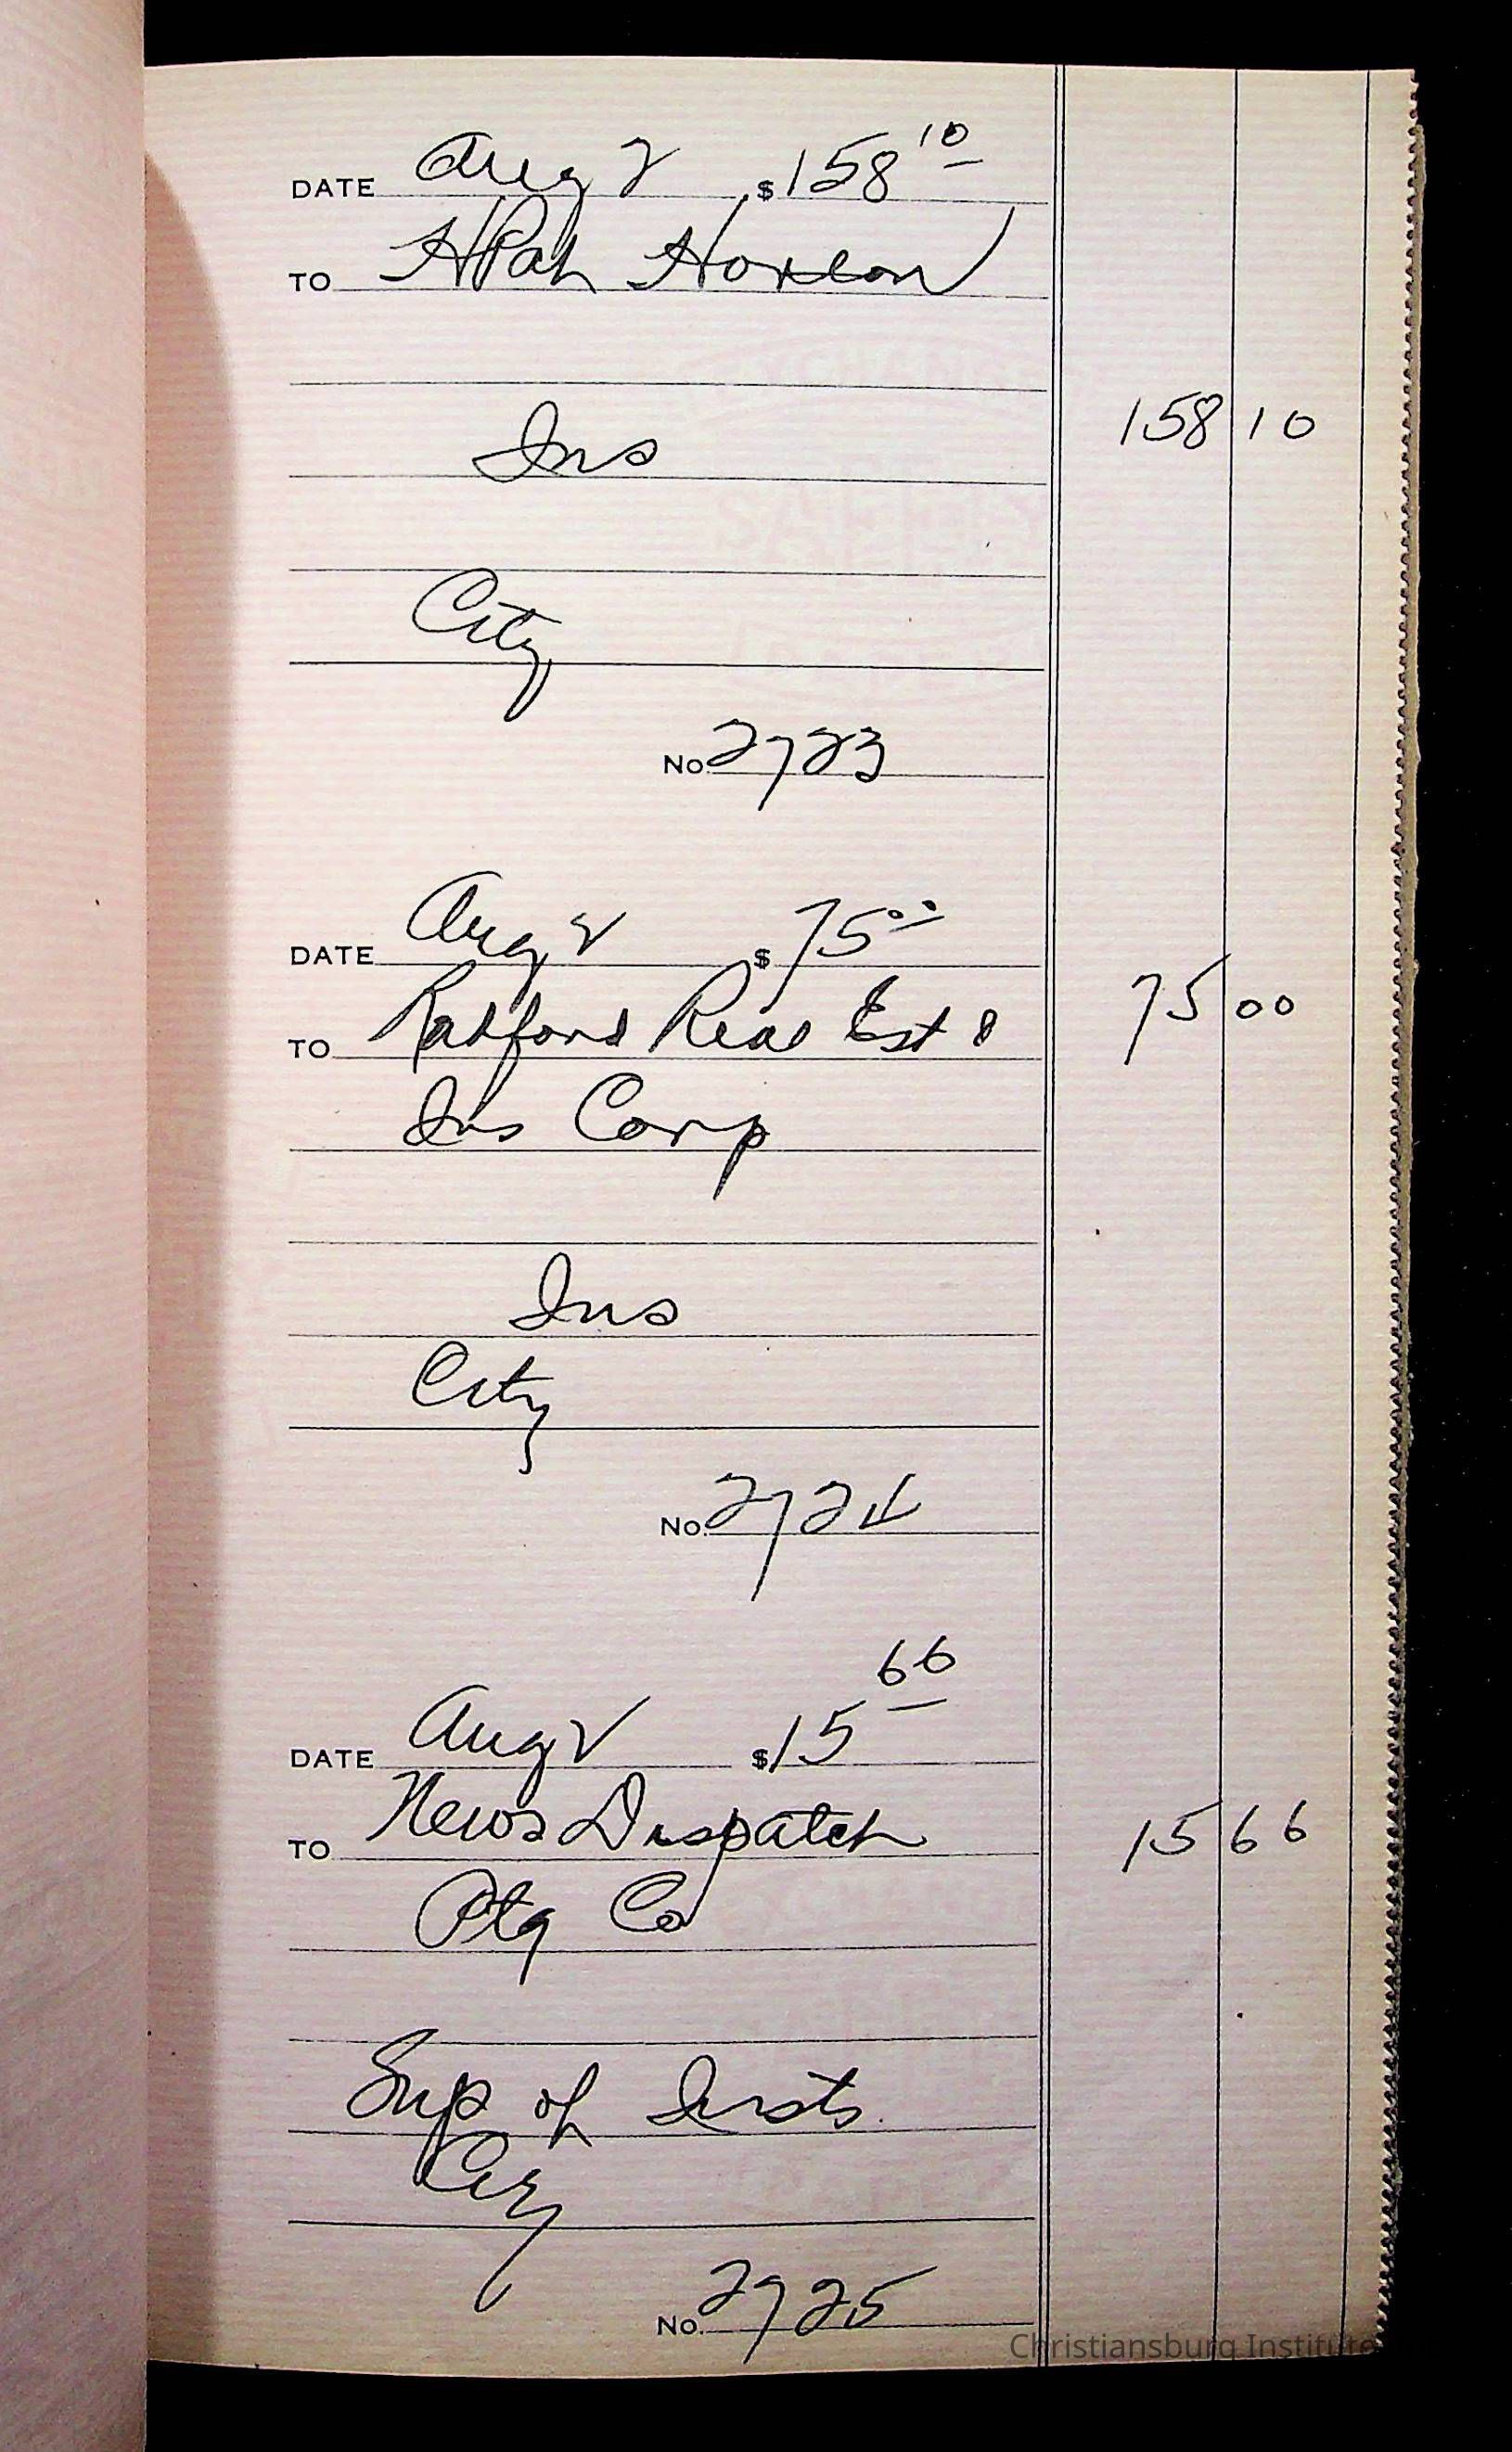 DATE Aug 2 $158 10
TO H Pat Horton
Ins 158 10
City
No. 2723
DATE Aug 2 $75 00
TO Radford Real Est & 75 00
Ins Corp
Ins
City
No. 2724
DATE Aug 2 $15 66
TO News Dispatch 15 66
Ptg Co
Sup of Insts.
City
No. 2725
Christiansburg Institute